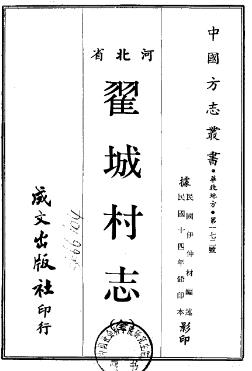 中國方志叢書・華北地方・第一七二號
據民國伊仲材編述
民國十四年鉛印本影印
河北省
翟城村志
(全)
成文出版社印行